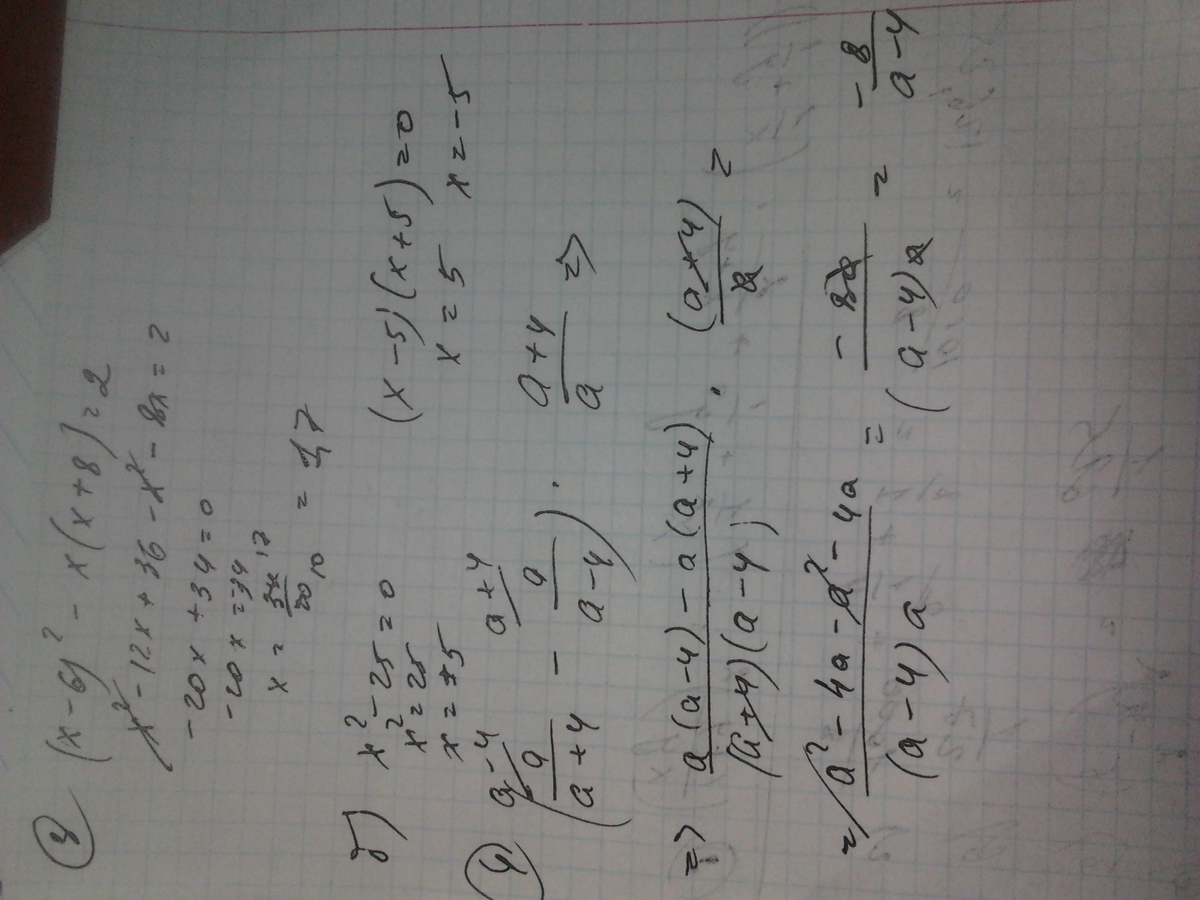 3 (x-6)² - x(x+8)=2
x² - 12x + 36 - x² - 8x = 2
-20x + 34 = 0
-20x = -34
x = 34 17 / 20 10 = 1,7
б) x² - 25 = 0 (x-5)(x+5)=0
x² = 25 x = 5 x = -5
x = ±5
4 (a-4 a/(a+4) - a+4 a/(a-4)) · (a+4)/a =>
=> (a(a-4) - a(a+4))/((a+4)(a-4)) · (a+4)/a =
= (a² - 4a - a² - 4a)/((a-4)a) = -8a/((a-4)a) = -8/(a-4)